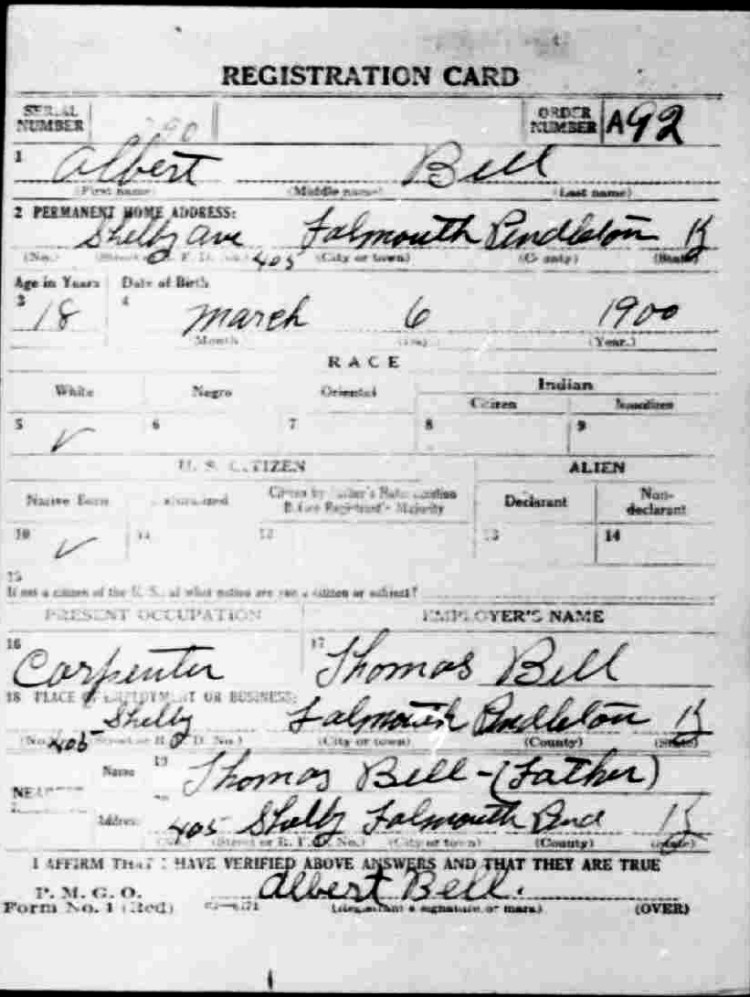 REGISTRATION CARD
SERIAL NUMBER 290 ORDER NUMBER A92
1 Albert Bell
(First name) (Middle name) (Last name)
2 PERMANENT HOME ADDRESS:
Shelby Ave Falmouth Pendleton Ky
(No.) 405 (City or town) (County) (State)
Age in Years Date of Birth
3 18 4 March 6 1900
(Month) (Day) (Year.)
RACE
White Negro Oriental Indian
Citizen Noncitizen
5 ✓ 6 7 8 9
U. S. CITIZEN ALIEN
Native Born Naturalized Citizen by Father's Naturalization Before Registrant's Majority Declarant Non-declarant
10 ✓ 11 12 13 14
15
If not a citizen of the U. S., of what nation are you a citizen or subject?
PRESENT OCCUPATION EMPLOYER'S NAME
16 Carpenter 17 Thomas Bell
18 PLACE OF EMPLOYMENT OR BUSINESS:
Shelby Falmouth Pendleton Ky
(No.) 405 (Street or R. F. D. No.) (City or town) (County) (State)
NEAREST Name 19 Thomas Bell - (Father)
Address 405 Shelby Falmouth Pend Ky
(No.) (Street or R. F. D. No.) (City or town) (County) (State)
I AFFIRM THAT I HAVE VERIFIED ABOVE ANSWERS AND THAT THEY ARE TRUE
P. M. G. O. Albert Bell.
Form No. 1 (Red) (Registrant's signature or mark) (OVER)